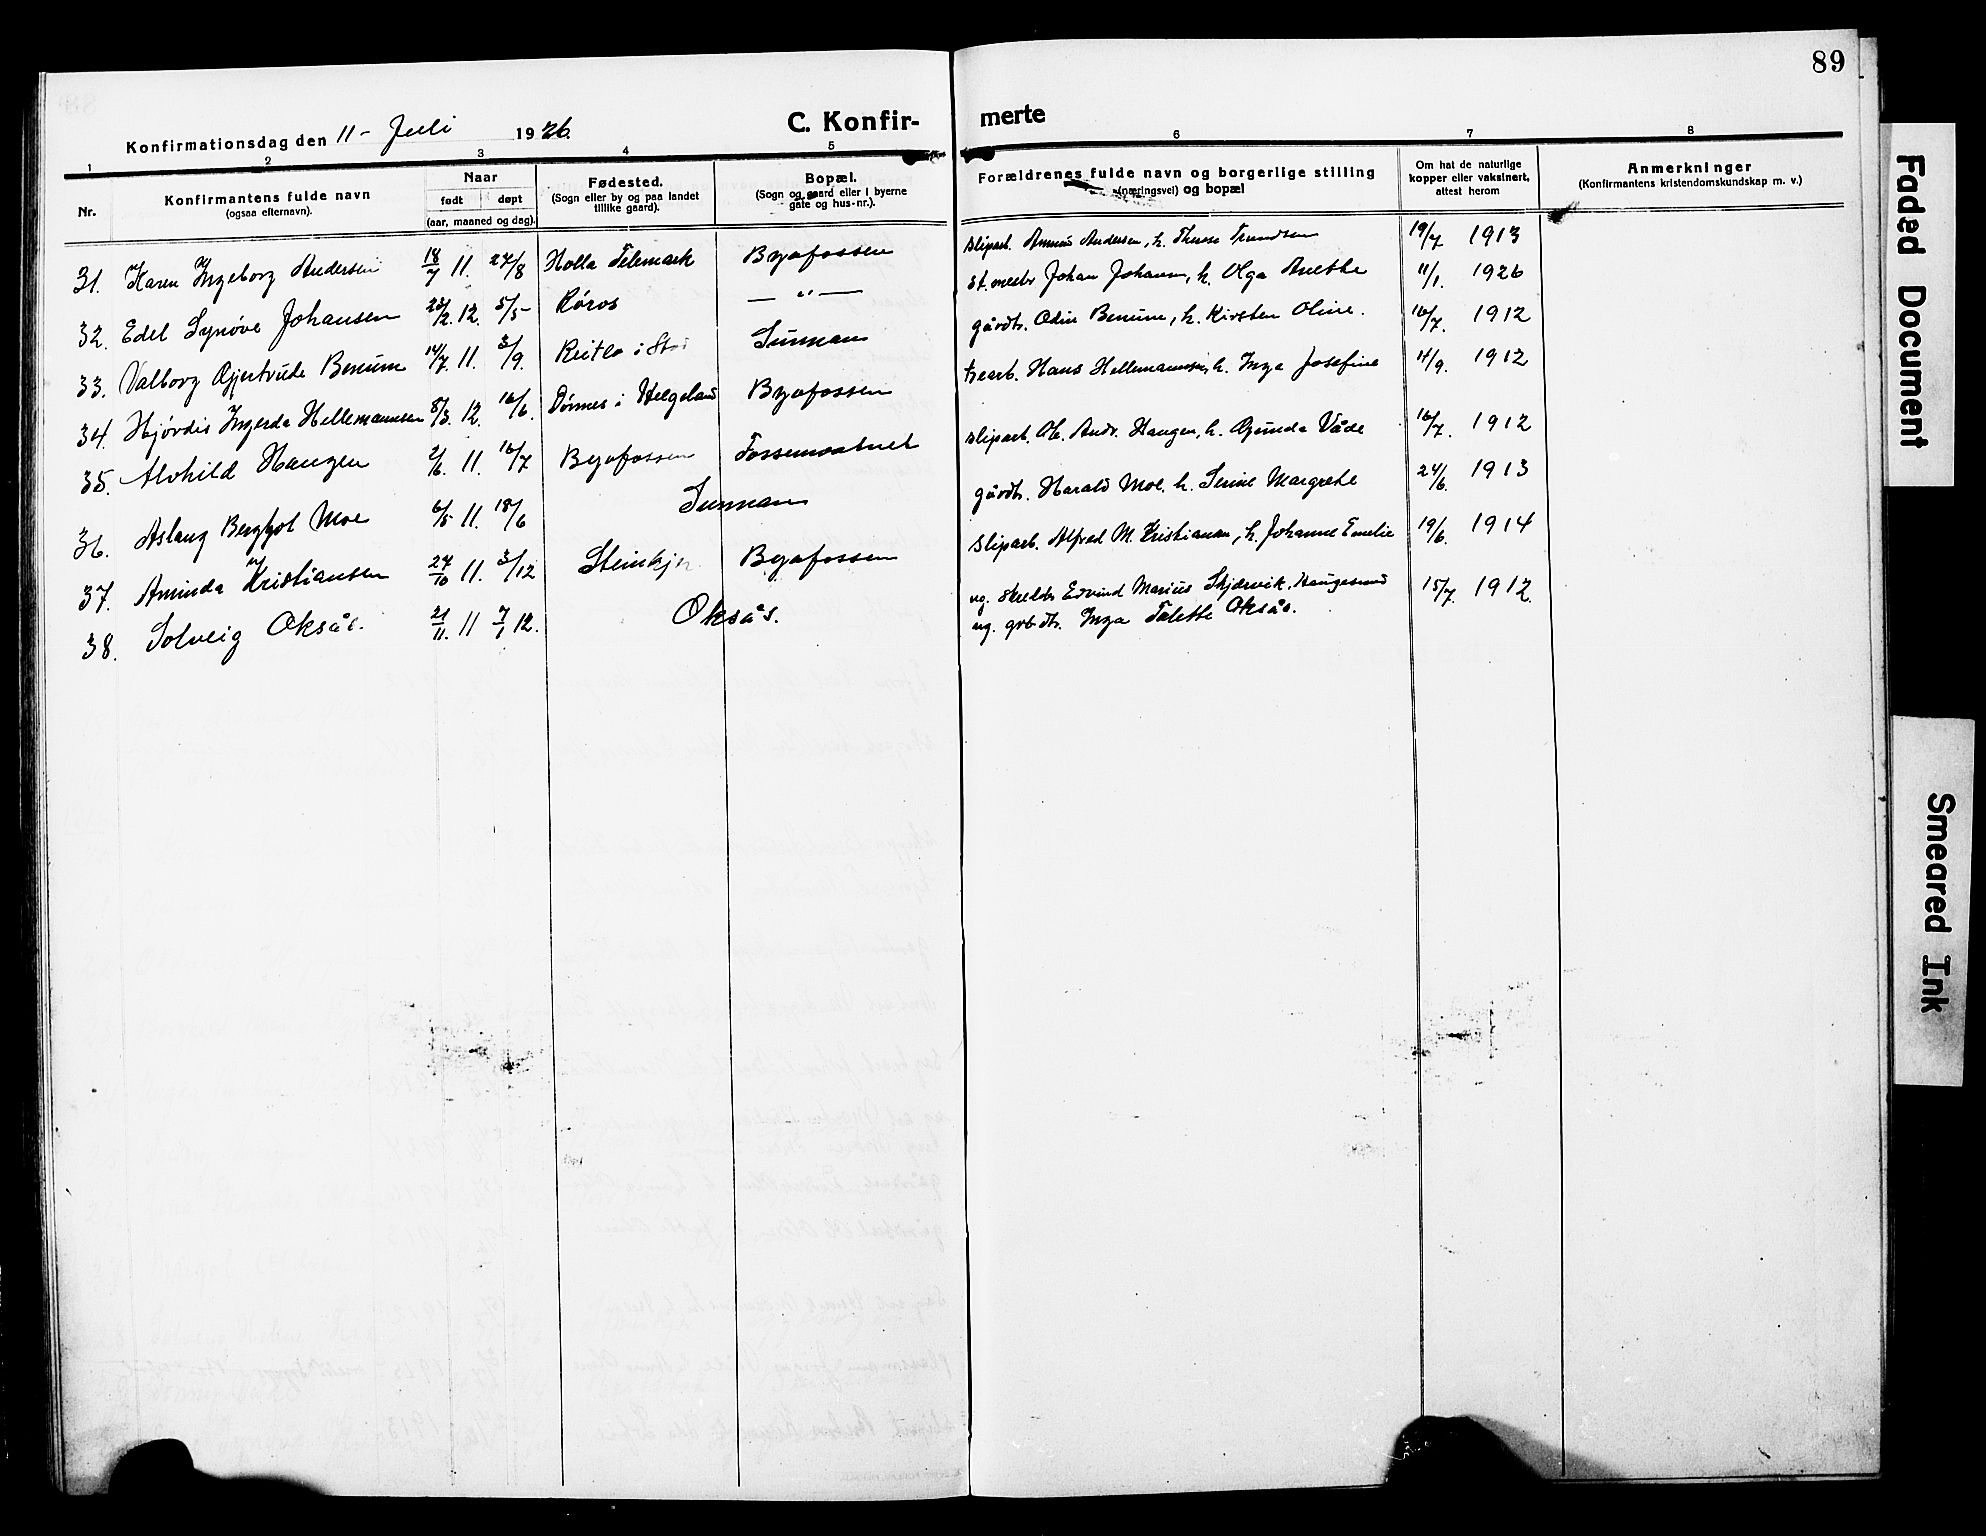 89
Konfirmationsdag den 11- Juli 1926.
C. Konfir-merte
1 2 3 4 5 6 7 8
Nr.
Konfirmantens fulde navn
(ogsaa efternavn).
Naar
født døpt
(aar, maaned og dag).
Fødested.
(Sogn eller by og paa landet
tillike gaard).
Bopæl.
(Sogn og gaard eller i byerne
gate og hus-nr.).
Forældrenes fulde navn og borgerlige stilling
(næringsvei) og bopæl
Om hat de naturlige
kopper eller vaksinert,
attest herom
Anmerkninger
(Konfirmantens kristendomskundskap m. v.)
31. Karen Ingeborg Andersen 18/7 11. 27/8 Holla Telemark Byafossen sliparb. Andersen, h. Therese 19/7 1913
32. Edel Synøve Johansen 12. 5/5- Røros — " — Johan Johansen, h. Olga Anethe 11/1. 1926
33. Valborg Gjertrude Benum 14/7 11. 3/9. Sunnan gårdbr. Odin Benum, h. Kirsten Oline. 16/7. 1912
34. Hjørdis Ingerda Hellemannsen 8/3. 12. 16/6. i Helgeland Byafossen Hans Hellemannsen, h. Inga Josefine 11/9. 1912
35. Alvhild Haugen 2/6. 11. 16/7 Byafossen Fossemvatnet sliparb. Ol. Andr. Haugen, h. Gunda Våde 16/7. 1912
36. Aslaug Bergljot Moe 6/5 11. 18/6 Sunnan gårdbr. Harald Moe. h. Serine Margrete 24/6. 1913
37. Aminda Kristiansen 27/10 11. 3/12 Steinkjer Byafossen Sliparb. Alfred M. Kristiansen, h. Johanne Emelie 19/6. 1914
38. Solveig Oksås. 21/11. 11 7/1 12. Oksås. ug. Edvind Marius Skjærvik, Haugesund 15/7. 1912.
ug. Inga Talette Oksås.
Faded Document
Smeared Ink